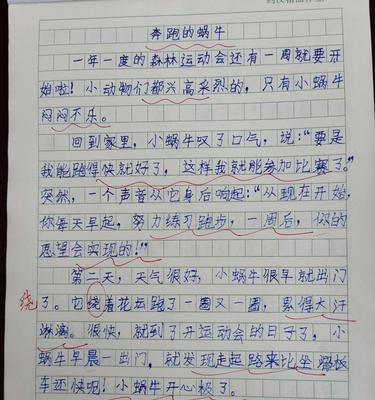 奔跑的蜗牛
一年一度的森林运动会还有一周就要开
始啦！小动物们都兴高采烈的，只有小蜗牛
闷闷不乐。
回到家里，小蜗牛叹了口气，说：“要是
我能跑得快就好了，这样我就能参加比赛了。”
突然，一个声音从它身后响起：“从现在开始，
你每天早起，努力练习跑步，一周后，你的
愿望会实现的！”
第二天，天气很好，小蜗牛很早就出门
绕
了。它绕着花坛跑了一圈又一圈，累得大汗
淋漓。很快，就到了开运动会的日子了，小
蜗牛早晨一出门，就发现走起路来比坐滑板
车还快呢！小蜗牛开心极了。